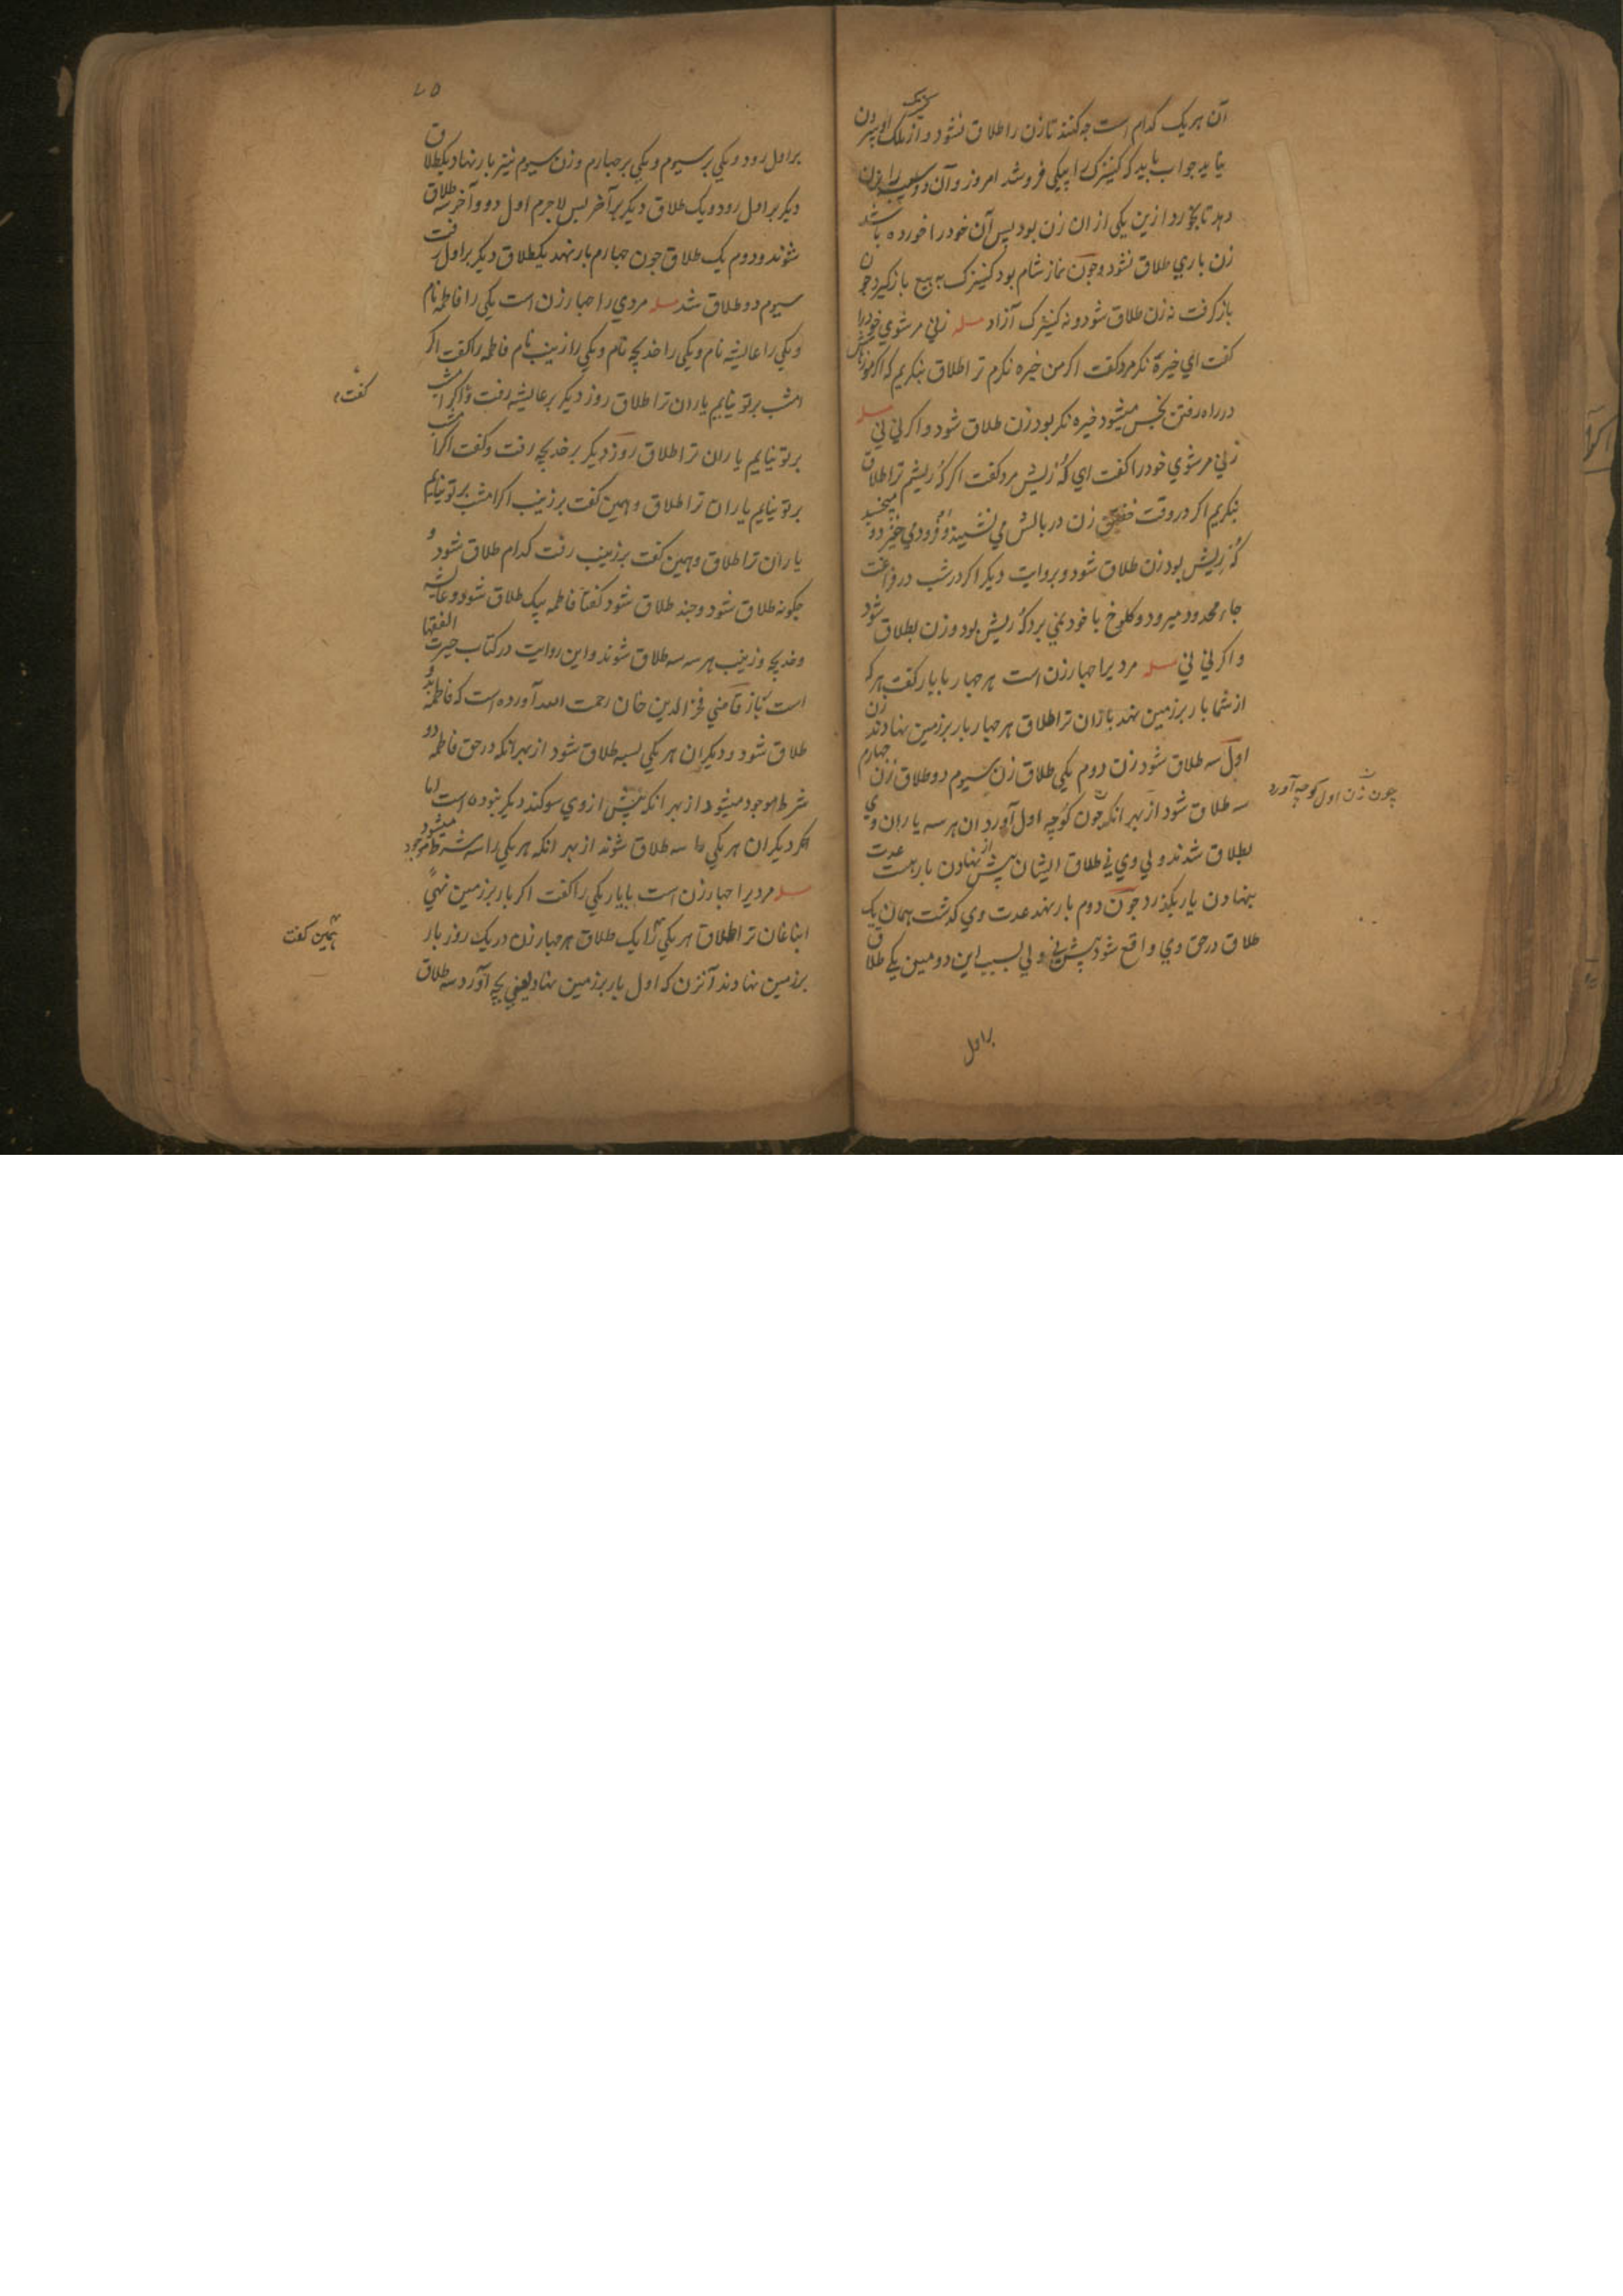 آن هر یک کدام است چه کنند تا زن را طلاق نشود و از ملک او بیرون
نیاید جواب باید که کنیزک را بیکی فروشد امروز و آن دو سیب را بزن
دهد تا بخورد ازین یکی از ان زن بود پس آن خود را خورده باشد
زن باری طلاق نشود و چون نماز شام بود کنیزک به بیع باز گیرد چون
باز گرفت نه زن طلاق شود و نه کنیزک آزاد مسله زنی مر شوی خود را
گفت ای خیره نکر مرد گفت اگر من خیره نکرم ترا طلاق بنکریم که اگر
در راه رفتن میشود خیره نکر بود زن طلاق شود و اگر نی نی مسله
زنی مر شوی خود را گفت ای کُه ریش مرد گفت اگر کُه ریشم ترا طلاق
بنکریم اگر در وقت زن در بالش می نشیند و فرود می خیزد و
کُه ریش بود زن طلاق شود و بروایت دیگر اگر در شب در فراغت
جاء محدود میرود و کلوخ با خود نمی برد کُه ریش بود و زن بطلاق شود
و اگر نی نی مسله مردیرا چهار زن است هر چهار باباردار گفت هر که
از شما بار بر زمین نهد یاران ترا طلاق هر چهار بار بر زمین نهادند زن
اول سه طلاق شود زن دوم یکی طلاق زن سیوم دو طلاق زن چهارم
سه طلاق شود از بهر انکه چون کوچه اول آورد ان هر سه یاران وی
چون زن اول کوچه آورد
بطلاق شدند و لی وی نی طلاق ایشان پیش از نهادن بار هست عدت
بنهادن بار بگذرد چون دوم بار نهد عدت وی گذشت همان یک
طلاق در حق وی واقع شود پیش نی و لی بسبب این دومین یکی طلاق
براول
۷۵
بر اول رود و یکی بر سیوم و یکی بر چهارم و زن سیوم نیز بار نهاد یکطلاق
دیگر بر اول رود و یک طلاق دیگر بر آخر پس لاجرم اول دو و آخر سه طلاق
شوند و دوم یک طلاق چون چهارم بار نهد یکطلاق دیگر بر اول رفت
سیوم دو طلاق شد مسله مردی را چهار زن است یکی را فاطمه نام
و یکی را عایشه نام و یکی را خدیجه نام و یکی را زینب نام فاطمه را گفت اگر
امشب بر تو نیایم یاران ترا طلاق روز دیگر بر عایشه رفت و اگر امشب
گفت
بر تو نیایم یاران ترا طلاق روز دیگر بر خدیجه رفت و گفت اگر امشب
بر تو نیایم یاران ترا طلاق و همین گفت بر زینب اگر امشب بر تو نیایم
یاران ترا طلاق و همین گفت بر زینب رفت کدام طلاق شود و
چکونه طلاق شود و چند طلاق شود گفتا فاطمه بیک طلاق شود و عایشه
و خدیجه و زینب هر سه سه طلاق شوند و این روایت در کتاب حیرت الفقها
است باز قاضی فخر الدین خان رحمت الله آورده است که فاطمه بدو
طلاق شود و دیگران هر یکی بسه طلاق شود از بهر انکه در حق فاطمه دو
شرط موجود میشود از بهر انکه پیش از وی سوکند دیگر نبوده است اما
اگر دیگران هر یکی را سه طلاق شوند از بهر انکه هر یکی را سه شرط موجود میشود
مسله مردیرا چهار زن است بابار یکی را گفت اگر بار بر زمین نهی
انباغان ترا طلاق هر یکی را یک طلاق هر چهار زن در یک روز بار
همین گفت
بر زمین نهادند آنزن که اول بار بر زمین نهاد یعنی بچه آورد سه طلاق